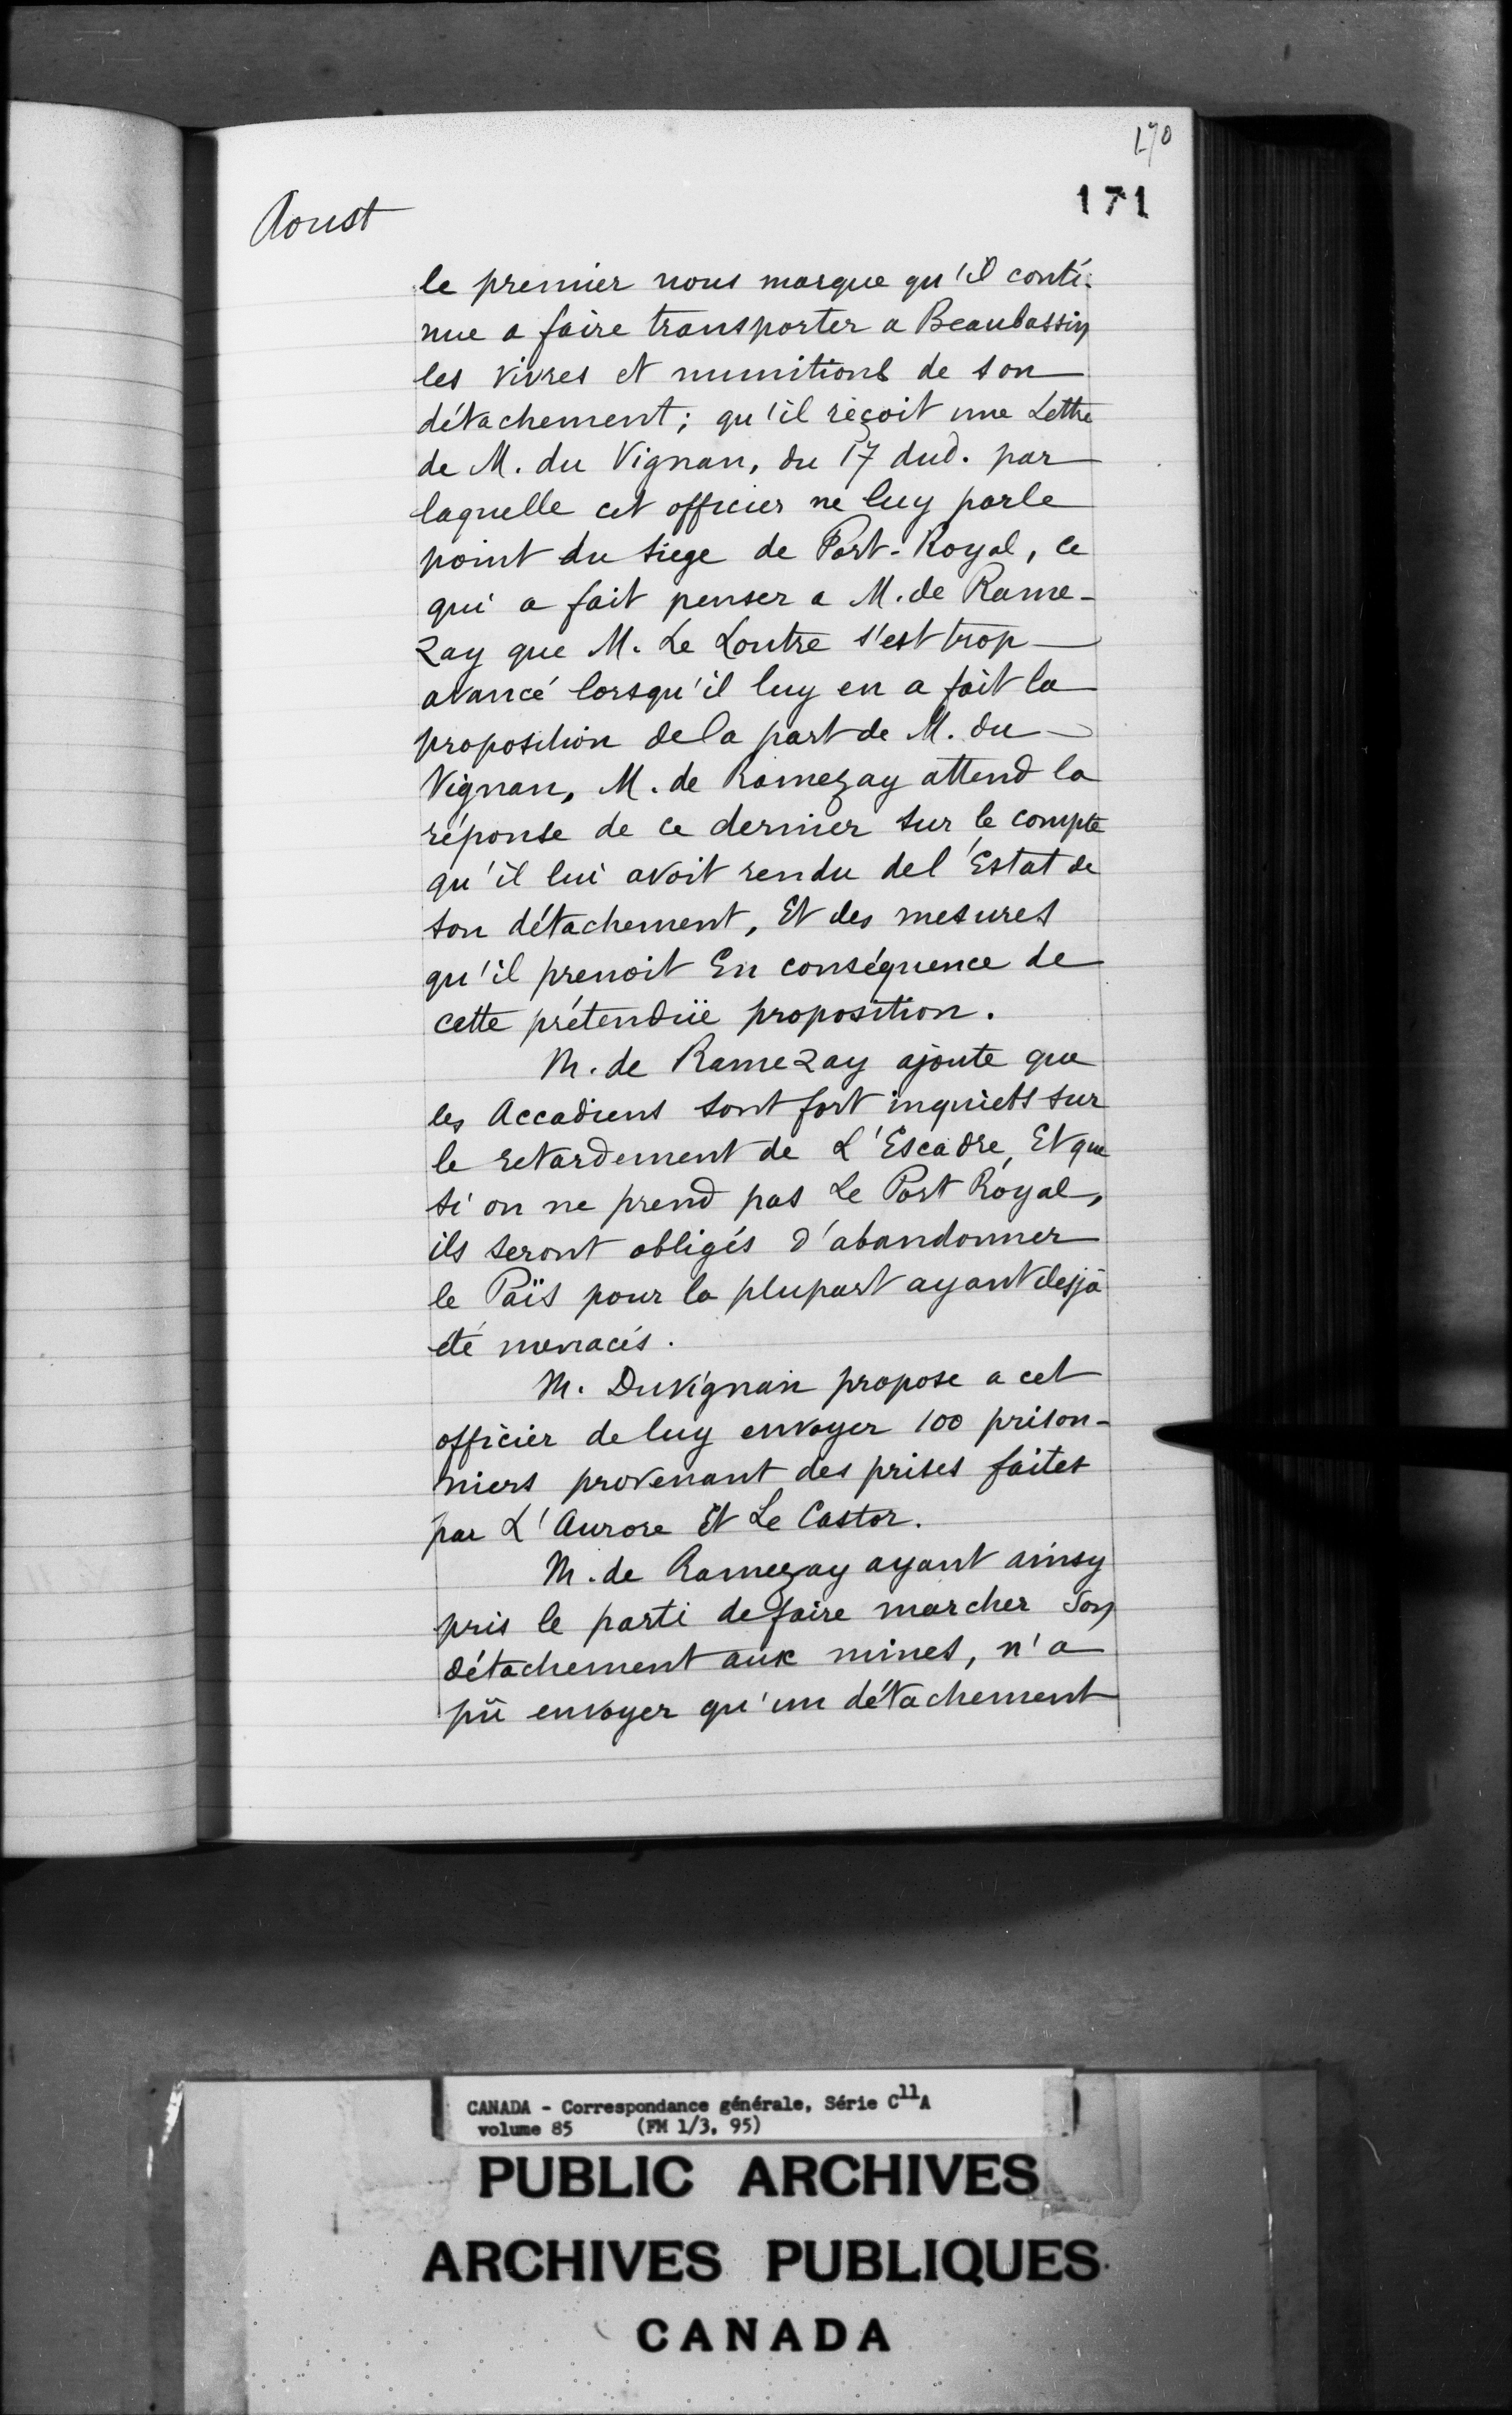 170
171
Aoust
le premier nous marque qu'il conti-
nue a faire transporter a Beaubassin
les vivres et munitions de son
détachement; qu'il reçoit une Lettre
de M. du Vignan, du 17 dud. par
laquelle cet officier ne luy parle
point du siege de Port-Royal, ce
qui a fait penser a M. de Rame-
zay que M. Le Loutre s'est trop
avancé lorsqu'il luy en a fait la
proposition de la part de M. du
Vignan, M. de Ramezay attend la
réponse de ce dernier sur le compte
qu'il lui avoit rendu del'Estat de
son détachement, Et des mesures
qu'il prenoit En conséquence de
cette prétendüe proposition.
M. de Ramezay ajoute que
les Accadiens sont fort inquiets sur
le retardement de L'Escadre, Et que
si on ne prend pas Le Port Royal,
ils seront obligés d'abandonner
le Païs pour la plupart ayant desjà
été menacés.
M. Duvignan propose a cet
officier de luy envoyer 100 prison-
niers provenant des prises faites
par L'Aurore Et Le Castor.
M. de Ramezay ayant ainsy
pris le parti de faire marcher son
détachement aux mines, n'a
pû envoyer qu'un détachement
CANADA - Correspondance générale, Série C11A
volume 85 (FM 1/3, 95)
PUBLIC ARCHIVES
ARCHIVES PUBLIQUES
CANADA